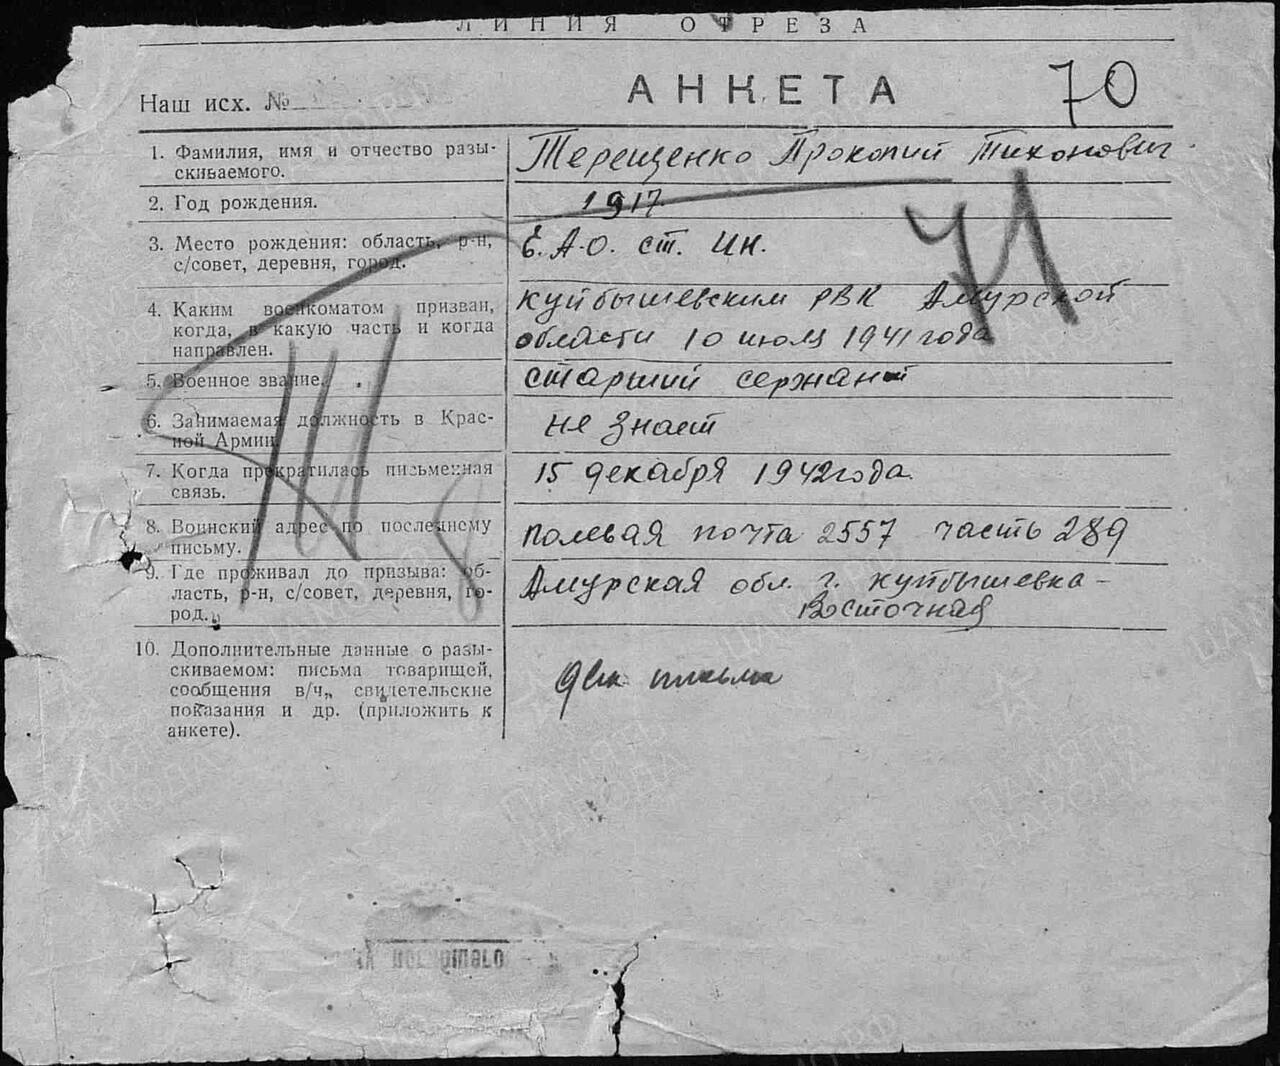 ЛИНИЯ ОТРЕЗА
Наш исх. № АНКЕТА 70
1. Фамилия, имя и отчество разы-
скиваемого.
Терещенко Прокопий Тихонович
2. Год рождения.
1917
3. Место рождения: область, р-н,
с/совет, деревня, город.
Е.А.О. ст. Ин.
4. Каким военкоматом призван,
когда, в какую часть и когда
направлен.
Куйбышевским РВК Амурской
области 10 июля 1941 года
71
5. Военное звание.
старший сержант
6. Занимаемая должность в Крас-
ной Армии.
не знает
7. Когда прекратилась письменная
связь.
15 декабря 1942 года.
8. Воинский адрес по последнему
письму.
полевая почта 2557 часть 289
9. Где проживал до призыва: об-
ласть, р-н, с/совет, деревня, го-
род.
Амурская обл. г. Куйбышевка-
Восточная
10. Дополнительные данные о разы-
скиваемом: письма товарищей,
сообщения в/ч., свидетельские
показания и др. (приложить к
анкете).
два письма
ПАМЯТЬ
НАРОДА